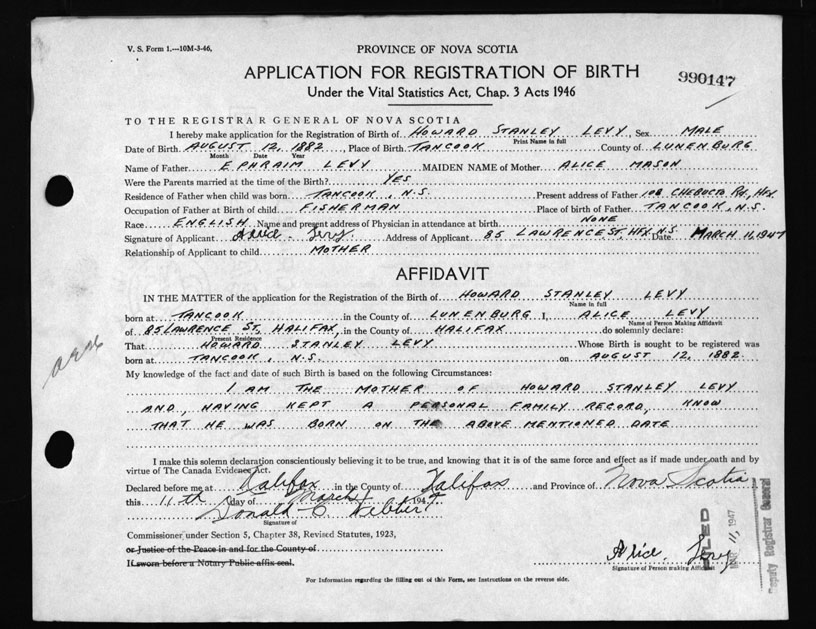 V. S. Form 1.—10M-3-46.
PROVINCE OF NOVA SCOTIA
APPLICATION FOR REGISTRATION OF BIRTH
990147
Under the Vital Statistics Act, Chap. 3 Acts 1946
TO THE REGISTRAR GENERAL OF NOVA SCOTIA
I hereby make application for the Registration of Birth of HOWARD STANLEY LEVY, Sex MALE
Print Name in full
Date of Birth AUGUST 12, 1882, Place of Birth TANCOOK County of LUNENBURG
Month Date Year
Name of Father EPHRAIM LEVY MAIDEN NAME of Mother ALICE MASON
Were the Parents married at the time of the Birth? YES
Residence of Father when child was born TANCOOK, N.S. Present address of Father 102 CHEBUCTO RD, HFX
Occupation of Father at Birth of child FISHERMAN Place of birth of Father TANCOOK, N.S.
Race ENGLISH Name and present address of Physician in attendance at birth NONE
Signature of Applicant Alice Levy Address of Applicant 85 LAWRENCE ST, HFX. N.S. Date MARCH 11, 1947
Relationship of Applicant to child MOTHER
AFFIDAVIT
IN THE MATTER of the application for the Registration of the Birth of HOWARD STANLEY LEVY
Name in full
born at TANCOOK in the County of LUNENBURG I, ALICE LEVY
Name of Person Making Affidavit
of 85 LAWRENCE ST, HALIFAX, in the County of HALIFAX do solemnly declare:
Present Residence
That HOWARD STANLEY LEVY Whose Birth is sought to be registered was
born at TANCOOK, N.S. on AUGUST 12, 1882.
My knowledge of the fact and date of such Birth is based on the following Circumstances:
I AM THE MOTHER OF HOWARD STANLEY LEVY
AND, HAVING KEPT A PERSONAL FAMILY RECORD, KNOW
THAT HE WAS BORN ON THE ABOVE MENTIONED DATE
I make this solemn declaration conscientiously believing it to be true, and knowing that it is of the same force and effect as if made under oath and by
virtue of The Canada Evidence Act.
Declared before me at Halifax in the County of Halifax and Province of Nova Scotia
this 11th day of March 1947
Donald C. Webber
Signature of
Commissioner under Section 5, Chapter 38, Revised Statutes, 1923,
or Justice of the Peace in and for the County of
If sworn before a Notary Public affix seal.
Alice Levy
Signature of Person making Affidavit
For Information regarding the filling out of this Form, see Instructions on the reverse side.
FILED
MAR 11 1947
Deputy Registrar General